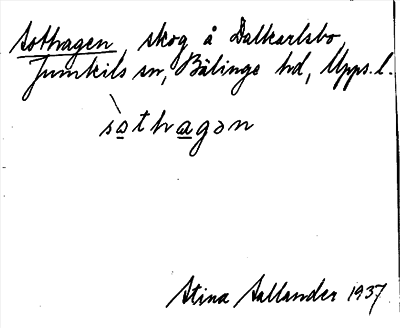 Sothagen, skog å Dalkarlsbo
Jumkils sn, Bälinge hd, Upps. l.
sothagən
Stina Sallander 1937